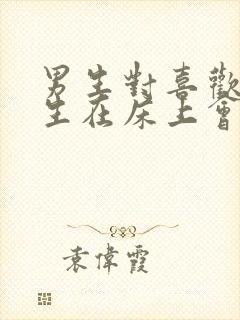 男生對喜歡
生在床上會
袁偉霞